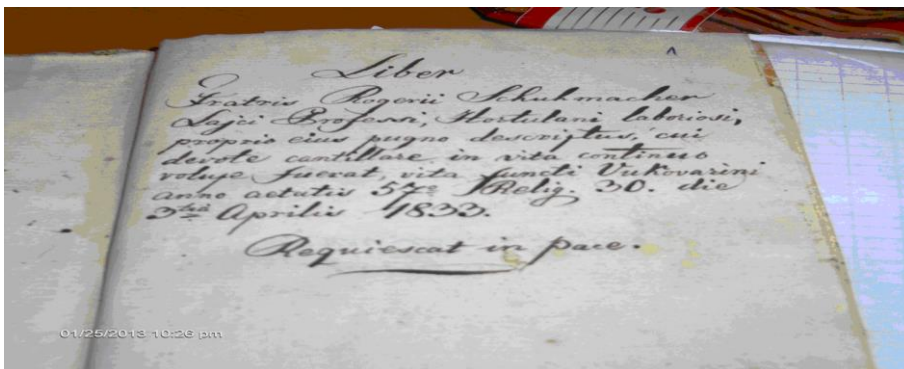 Liber
Fratris Rogerii Schuhmacher
Lajci Professi, Hortulani laboriosi,
proprio eius pugno descriptus, cui
devote cantillare in vita continuo
volupe fuerat, vita functi Vukovarini
anno aetatis 57º Relig. 30. die
3tia Aprilis 1833.
Requiescat in pace.
01/25/2013 10:26 pm